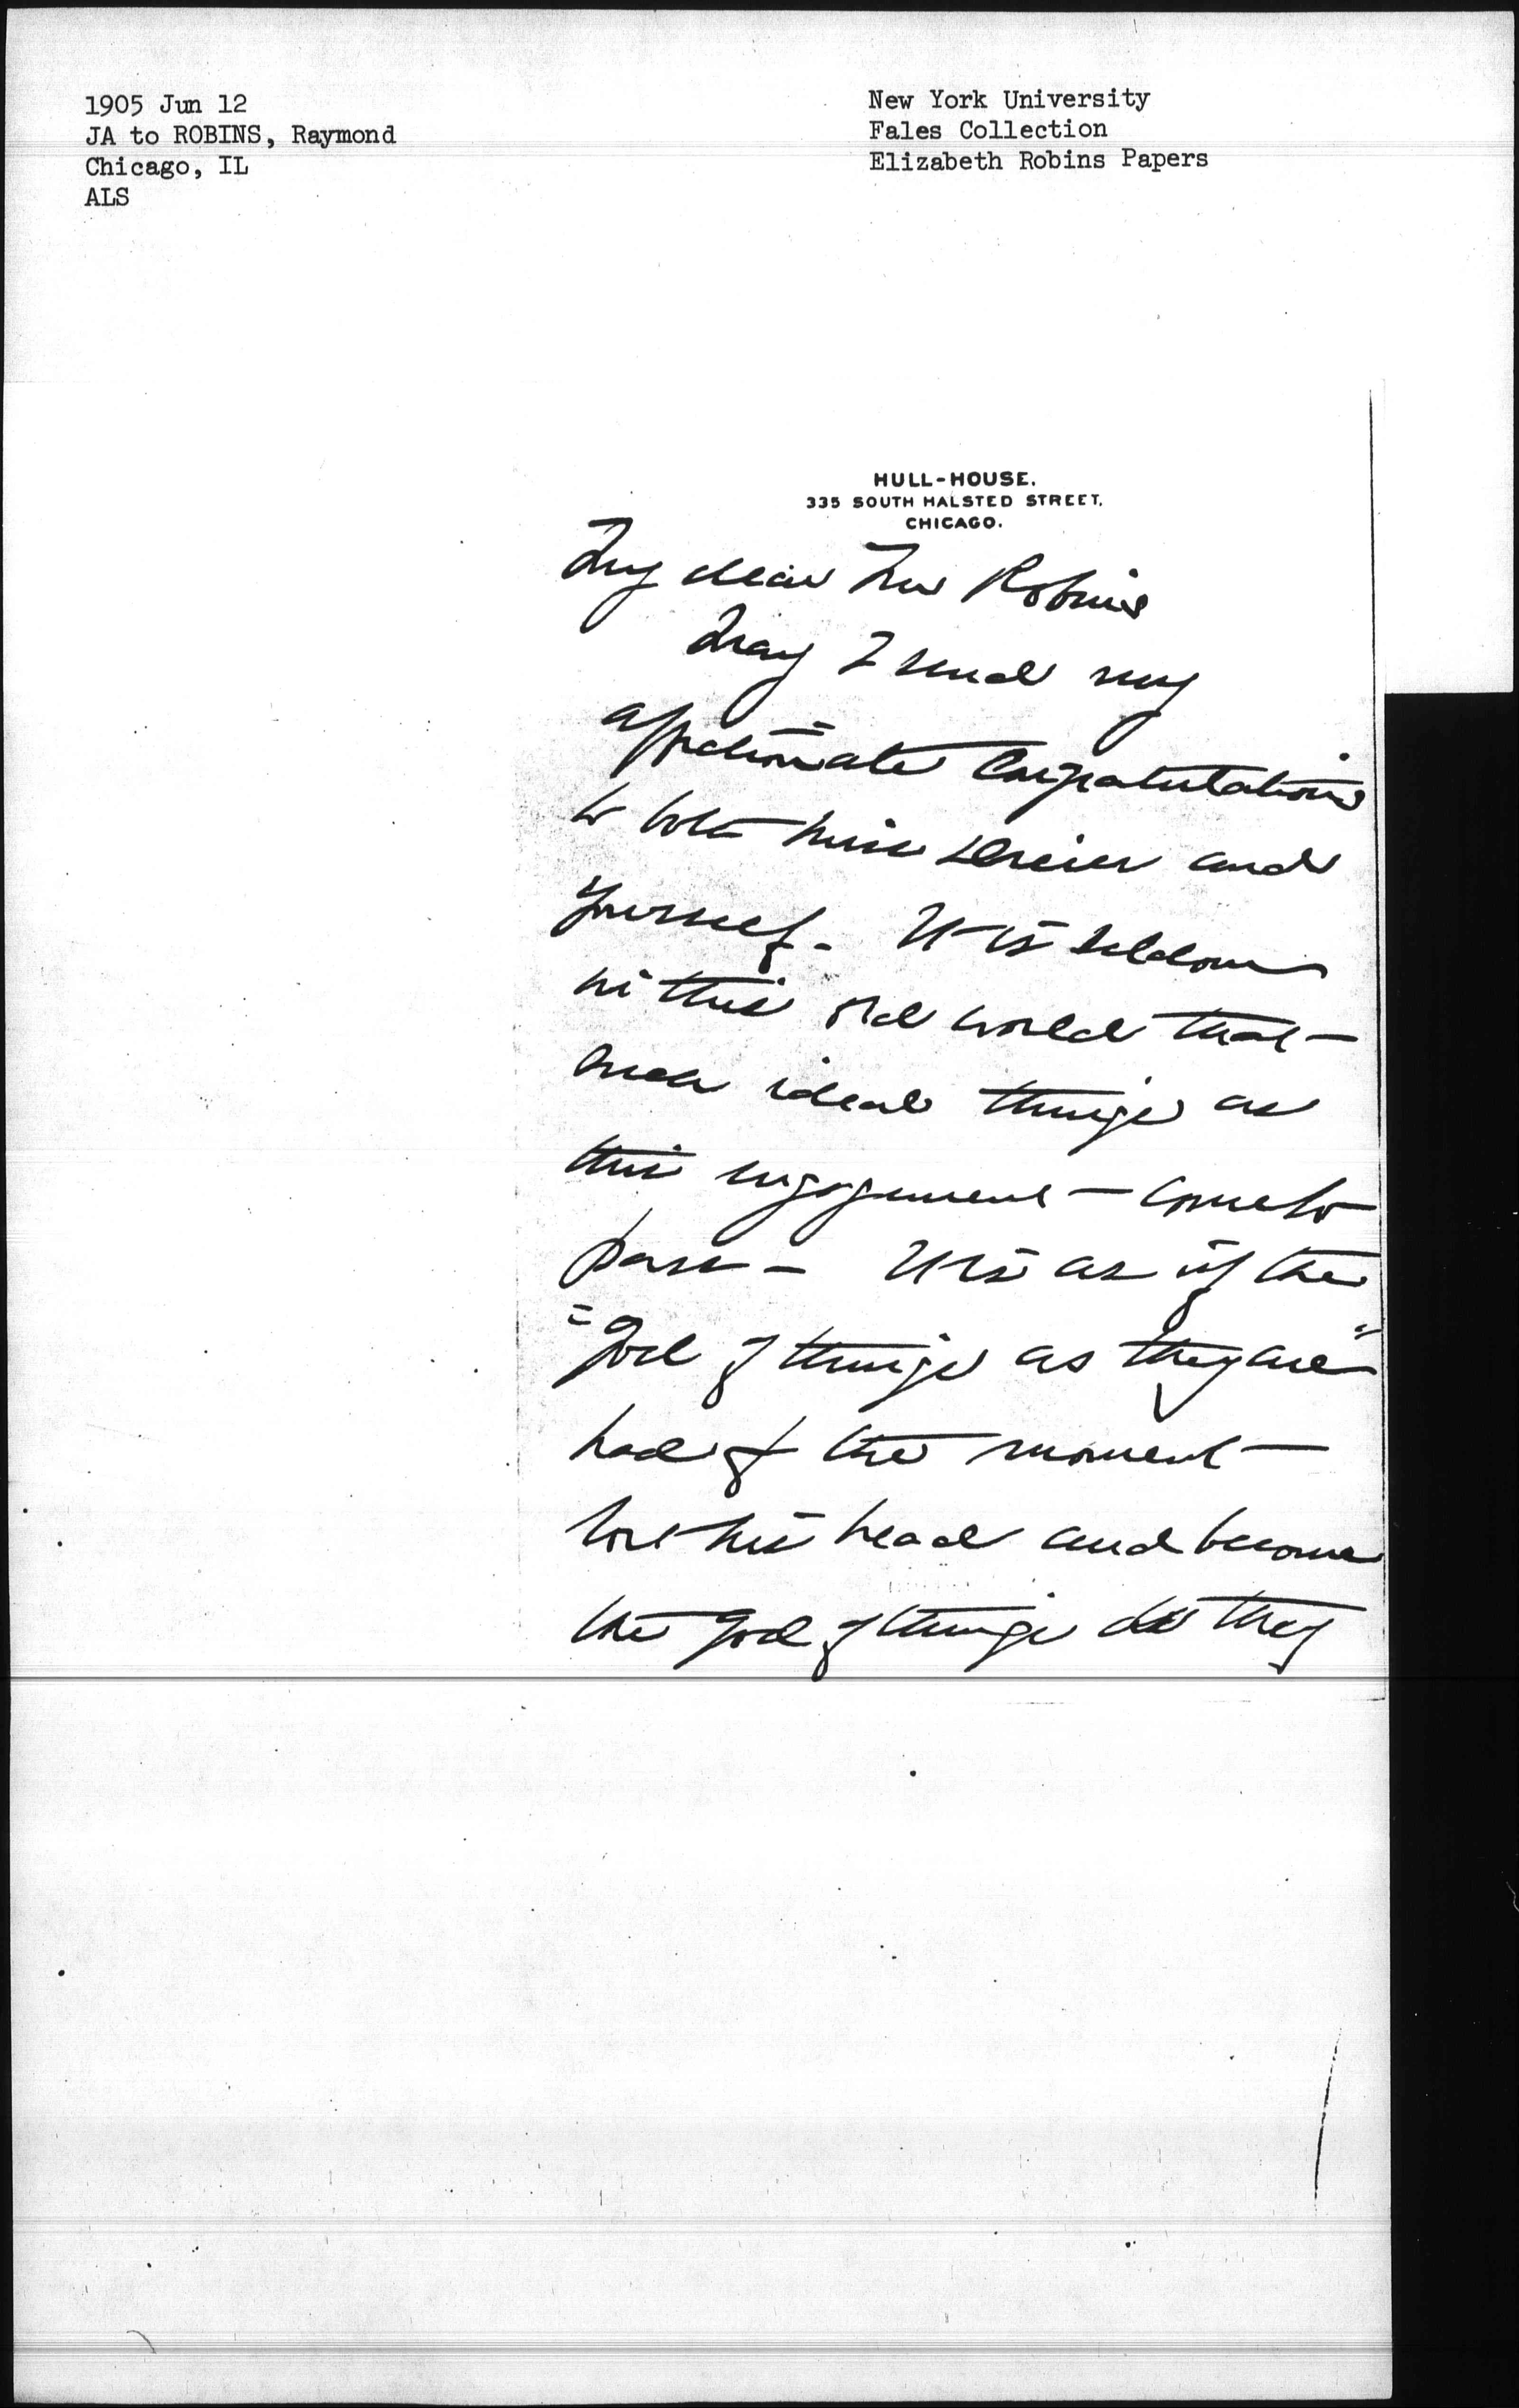 1905 Jun 12
JA to ROBINS, Raymond
Chicago, IL
ALS
New York University
Fales Collection
Elizabeth Robins Papers
HULL-HOUSE.
335 SOUTH HALSTED STREET.
CHICAGO.
My dear Mr Robins
May I send my
affectionate congratulations
to both Miss Dreier and
yourself. It is seldom
in this old world that
such ideal things as
this engagement - come to
pass - It is as if the
"God of things as they are"
had for the moment
lost his head and become
the god of things as they